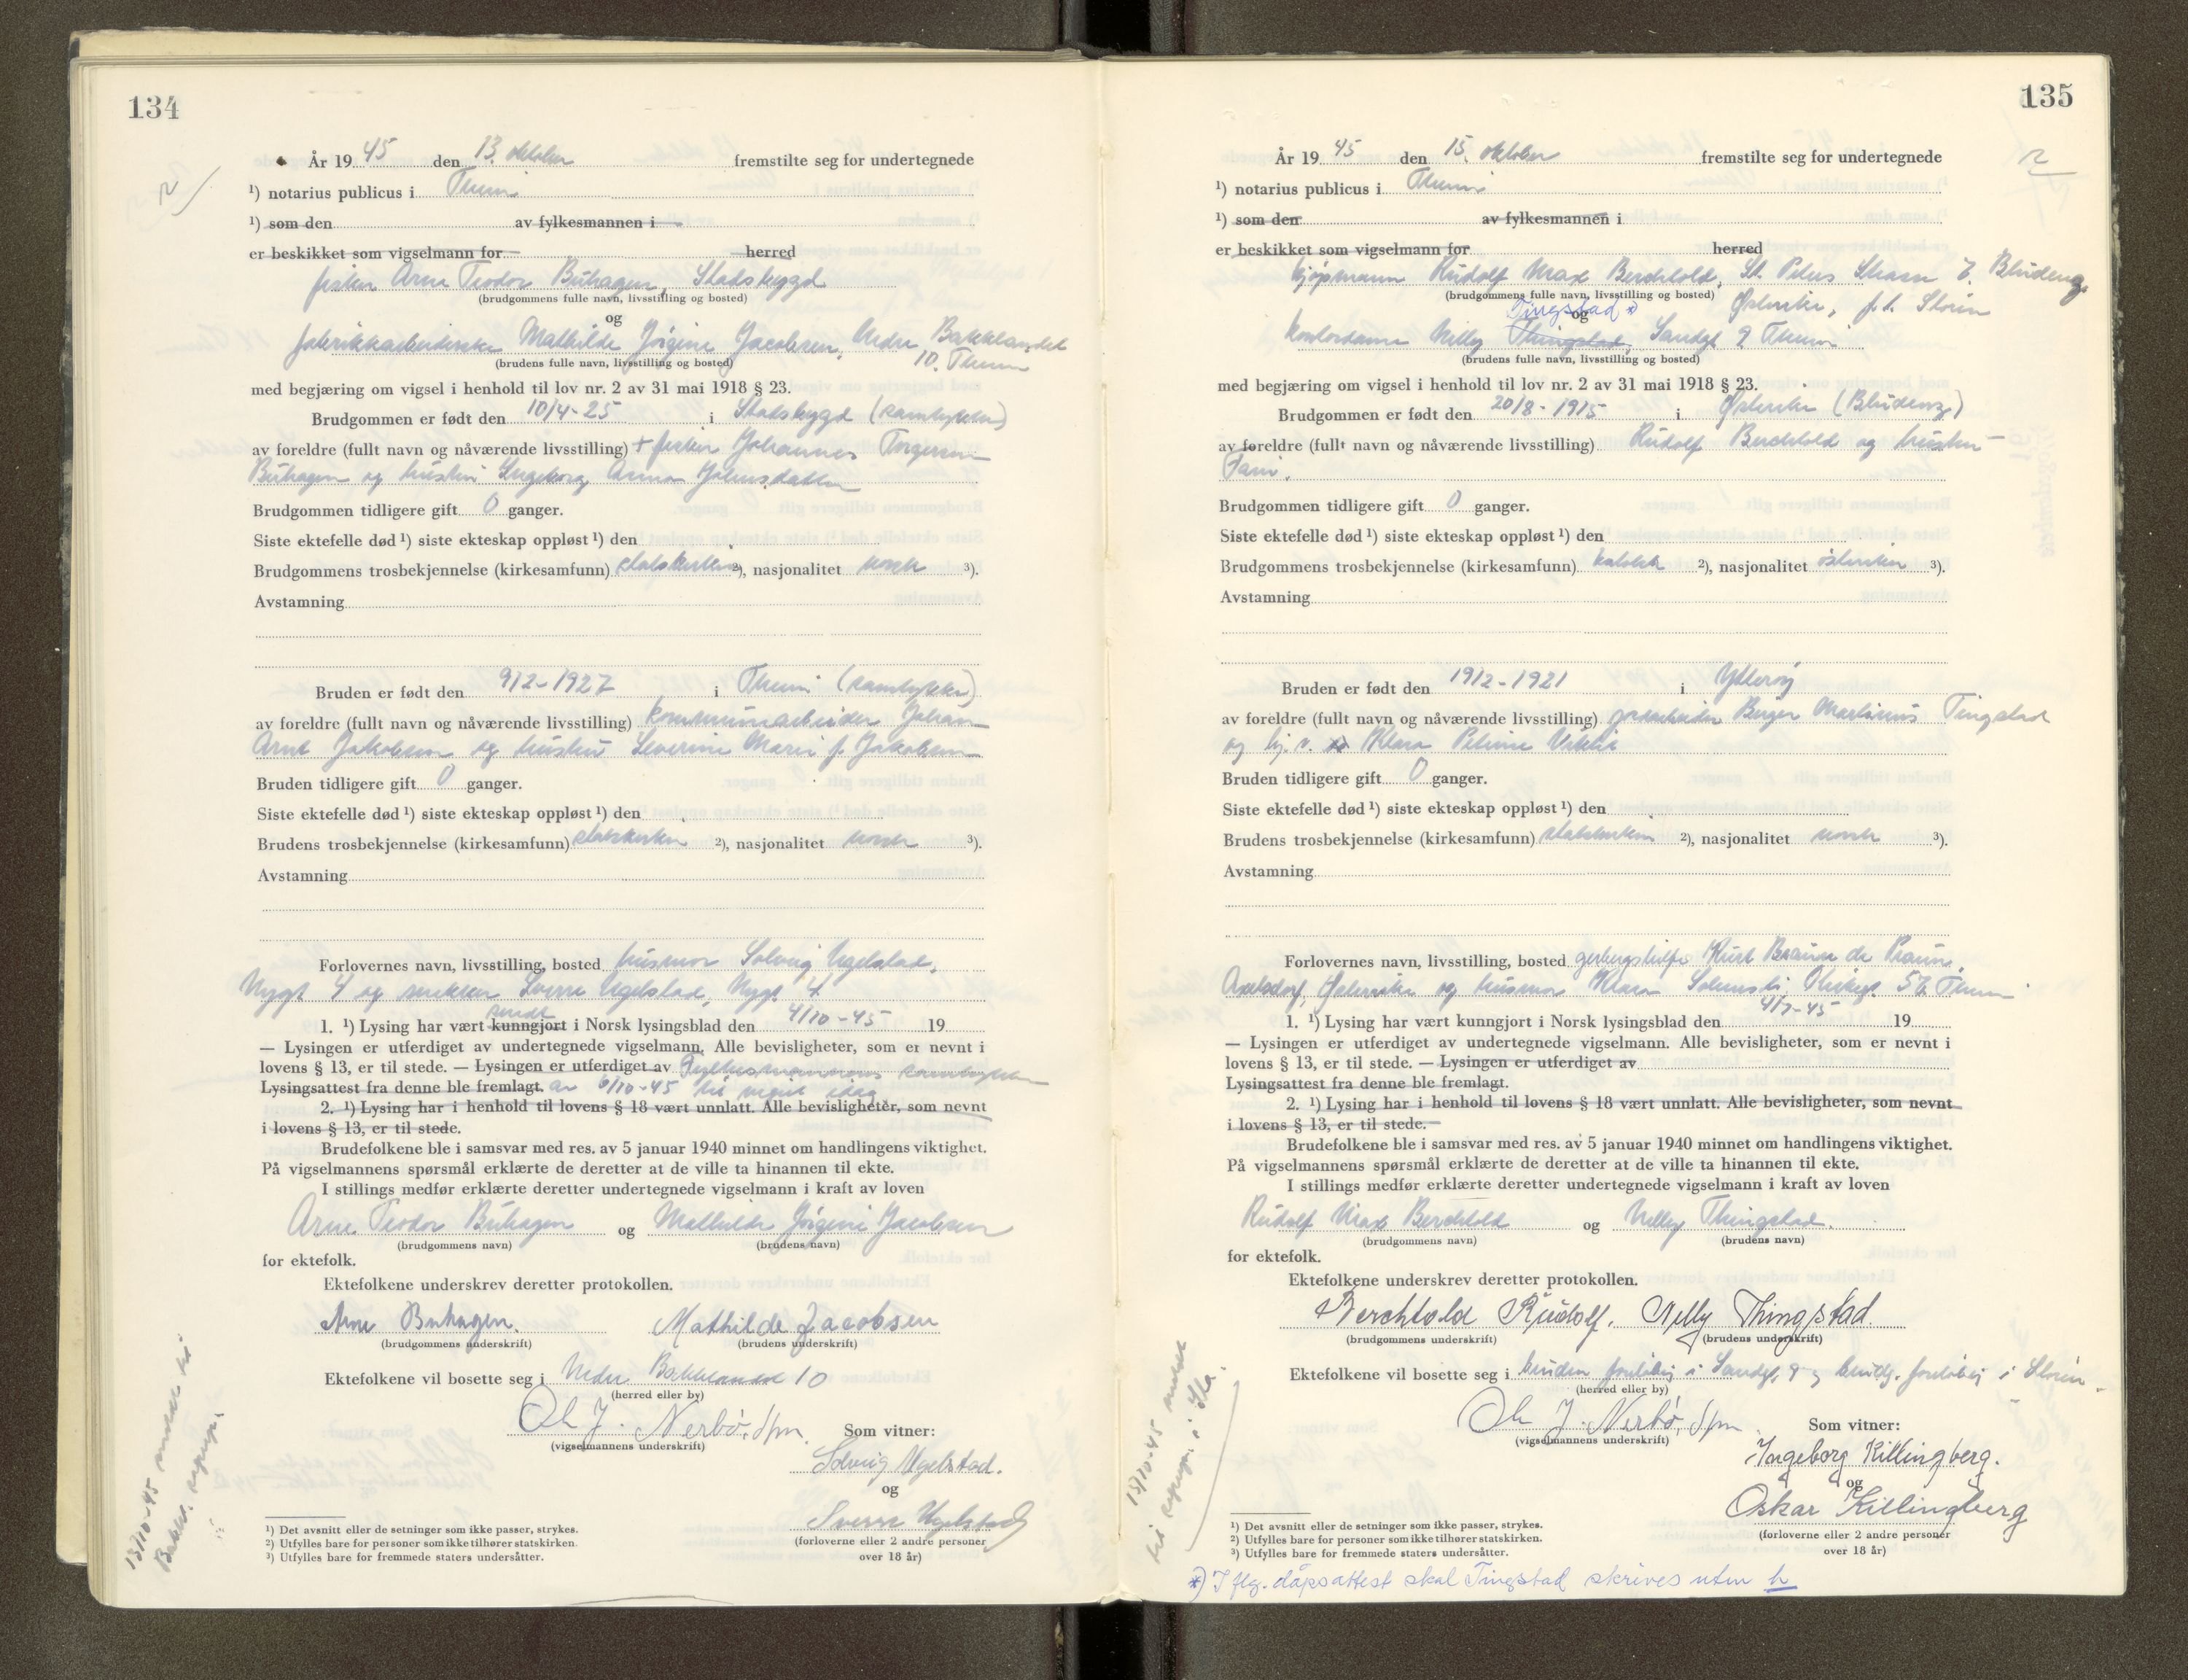 134
År 19 45 den 13. oktober fremstilte seg for undertegnede
¹) notarius publicus i Theim
¹) som den av fylkesmannen i
er beskikket som vigselmann for herred
fisker Arne Teodor Buhagen, Stadsbygd
(brudgommens fulle navn, livsstilling og bosted)
og
fabrikkarbeiderske Mathilde Jørgine Jacobsen, Nedre Bakklandet
(brudens fulle navn, livsstilling og bosted) 10. Theim
med begjæring om vigsel i henhold til lov nr. 2 av 31 mai 1918 § 23.
Brudgommen er født den 10/4-25 i Stadsbygd (samtykke)
av foreldre (fullt navn og nåværende livsstilling) + fisker Johannes Torgersen
Buhagen og hustru Ingeborg Anna Johnsdatter
Brudgommen tidligere gift 0 ganger.
Siste ektefelle død ¹) siste ekteskap oppløst ¹) den
Brudgommens trosbekjennelse (kirkesamfunn) statskirken ²), nasjonalitet norsk ³).
Avstamning
Bruden er født den 9/2-1927 i Theim (samtykke)
av foreldre (fullt navn og nåværende livsstilling) kommunearbeider Johan
Arnt Jakobsen og hustru Severine Marie f. Jakobsen
Bruden tidligere gift 0 ganger.
Siste ektefelle død ¹) siste ekteskap oppløst ¹) den
Brudens trosbekjennelse (kirkesamfunn) statskirken ²), nasjonalitet norsk ³).
Avstamning
Forlovernes navn, livsstilling, bosted husmor Solveig Ugelstad,
Nygt 4 og snekker Sverre Ugelstad, Nygt 4
sendt
1. ¹) Lysing har vært kunngjort i Norsk lysingsblad den 4/10-45 19
— Lysingen er utferdiget av undertegnede vigselmann. Alle bevisligheter, som er nevnt i
lovens § 13, er til stede. — Lysingen er utferdiget av Fylkesmannens samtykke
Lysingsattest fra denne ble fremlagt. av 6/10-45 til vigsel idag
2. ¹) Lysing har i henhold til lovens § 18 vært unnlatt. Alle bevisligheter, som nevnt
i lovens § 13, er til stede.
Brudefolkene ble i samsvar med res. av 5 januar 1940 minnet om handlingens viktighet.
På vigselmannens spørsmål erklærte de deretter at de ville ta hinannen til ekte.
I stillings medfør erklærte deretter undertegnede vigselmann i kraft av loven
Arne Teodor Buhagen og Mathilde Jørgine Jacobsen
(brudgommens navn) (brudens navn)
for ektefolk.
Ektefolkene underskrev deretter protokollen.
Arne Buhagen. Mathilde Jacobsen
(brudgommens underskrift) (brudens underskrift)
Ektefolkene vil bosette seg i Nedre Bakklandet 10
(herred eller by)
Ole J. Nerbö, dfm. Som vitner:
(vigselmannens underskrift)
Solveig Ugelstad.
og
Sverre Ugelstad
(forloverne eller 2 andre personer
over 18 år)
¹) Det avsnitt eller de setninger som ikke passer, strykes.
²) Utfylles bare for personer som ikke tilhører statskirken.
³) Utfylles bare for fremmede staters undersåtter.
13/10-45 meldt til
Bakkl.
135
År 19 45 den 15. oktober fremstilte seg for undertegnede
¹) notarius publicus i Theim
¹) som den av fylkesmannen i
er beskikket som vigselmann for herred
kjøpmann Rudolf Max Berchtold, St. Peters Strasse 7. Bludenz
(brudgommens fulle navn, livsstilling og bosted) Østerrike, f.t. Støren
Tingstad *)
og
kontordame Nelly Thingstad, Sandgt 9 Theim
(brudens fulle navn, livsstilling og bosted)
med begjæring om vigsel i henhold til lov nr. 2 av 31 mai 1918 § 23.
Brudgommen er født den 20/8-1915 i Østerrike (Bludenz)
av foreldre (fullt navn og nåværende livsstilling) Rudolf Berchtold og hustru
Brudgommen tidligere gift 0 ganger.
Siste ektefelle død ¹) siste ekteskap oppløst ¹) den
Brudgommens trosbekjennelse (kirkesamfunn) katolsk ²), nasjonalitet østerriker ³).
Avstamning
Bruden er født den 19/2-1921 i Ytterøy
av foreldre (fullt navn og nåværende livsstilling) jordarbeider Berger Martinius Tingstad
og hj. v. Klara Petrine Viktil
Bruden tidligere gift 0 ganger.
Siste ektefelle død ¹) siste ekteskap oppløst ¹) den
Brudens trosbekjennelse (kirkesamfunn) statskirken ²), nasjonalitet norsk ³).
Avstamning
Forlovernes navn, livsstilling, bosted Kurt Braun de Praun,
Østerrike og husmor Klara 57 Theim
1. ¹) Lysing har vært kunngjort i Norsk lysingsblad den 4/7-45 19
— Lysingen er utferdiget av undertegnede vigselmann. Alle bevisligheter, som er nevnt i
lovens § 13, er til stede. — Lysingen er utferdiget av
Lysingsattest fra denne ble fremlagt.
2. ¹) Lysing har i henhold til lovens § 18 vært unnlatt. Alle bevisligheter, som nevnt
i lovens § 13, er til stede.
Brudefolkene ble i samsvar med res. av 5 januar 1940 minnet om handlingens viktighet.
På vigselmannens spørsmål erklærte de deretter at de ville ta hinannen til ekte.
I stillings medfør erklærte deretter undertegnede vigselmann i kraft av loven
Rudolf Max Berchtold og Nelly Thingstad.
(brudgommens navn) (brudens navn)
for ektefolk.
Ektefolkene underskrev deretter protokollen.
Berchtold Rudolf. Nelly Thingstad.
(brudgommens underskrift) (brudens underskrift)
Ektefolkene vil bosette seg i bruden foreløbig i Sandgt. 9 og brudg. foreløbig i Støren.
(herred eller by)
Ole J. Nerbö, dfm Som vitner:
(vigselmannens underskrift)
Ingeborg Killingberg.
og
Oskar Killingberg
(forloverne eller 2 andre personer
over 18 år)
¹) Det avsnitt eller de setninger som ikke passer, strykes.
²) Utfylles bare for personer som ikke tilhører statskirken.
³) Utfylles bare for fremmede staters undersåtter.
*) Iflg. dåpsattest skal Tingstad skrives uten h
15/10-45 meldt
til i Ila.